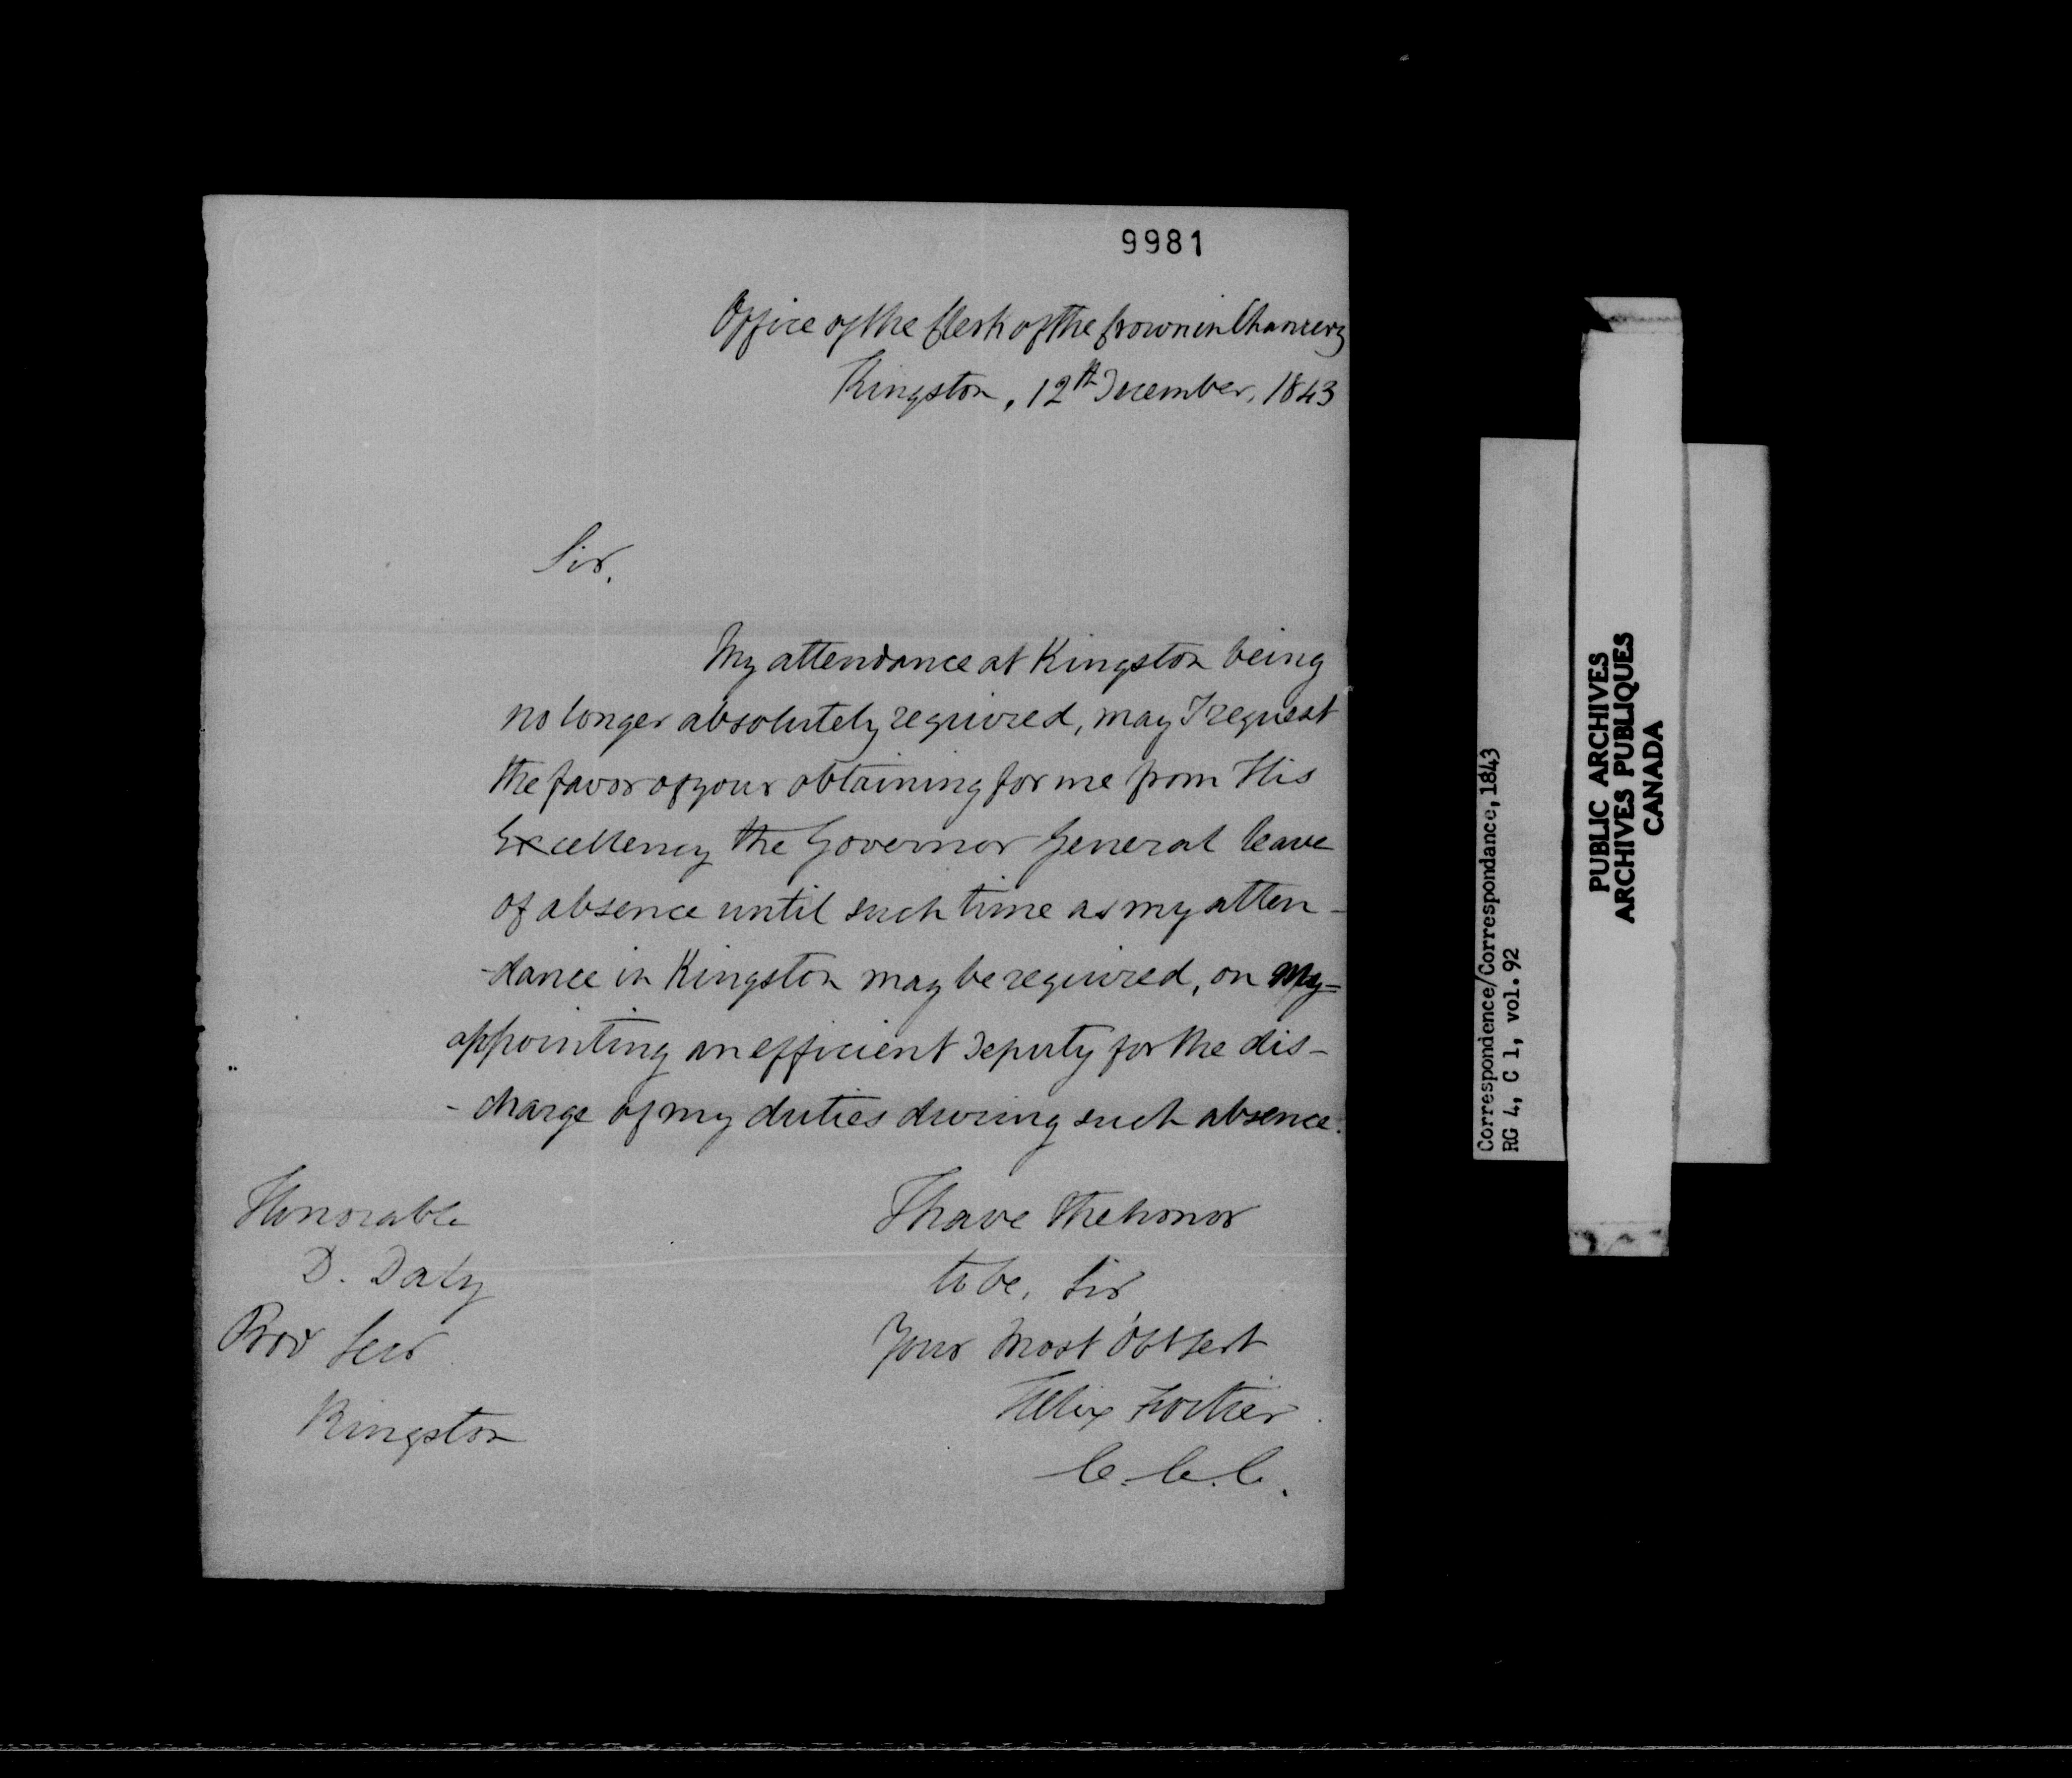 9981
Office of the Clerk of the Crown in Chancery
Kingston, 12th December, 1843
Sir,
My attendance at Kingston being
no longer absolutely required, may I request
the favor of your obtaining for me from His
Excellency the Governor General leave
of absence until such time as my atten-
-dance in Kingston may be required, on my=
appointing an efficient Deputy for the dis-
-charge of my duties during such absence.
I have the honor
to be, Sir,
Your Most Obt Sert
Felix Fortier.
C.C.C.
Honorable
D. Daly
Prov Secr
Kingston
Correspondence/Correspondance, 1843
RG 4, C 1, vol. 92
PUBLIC ARCHIVES
ARCHIVES PUBLIQUES
CANADA